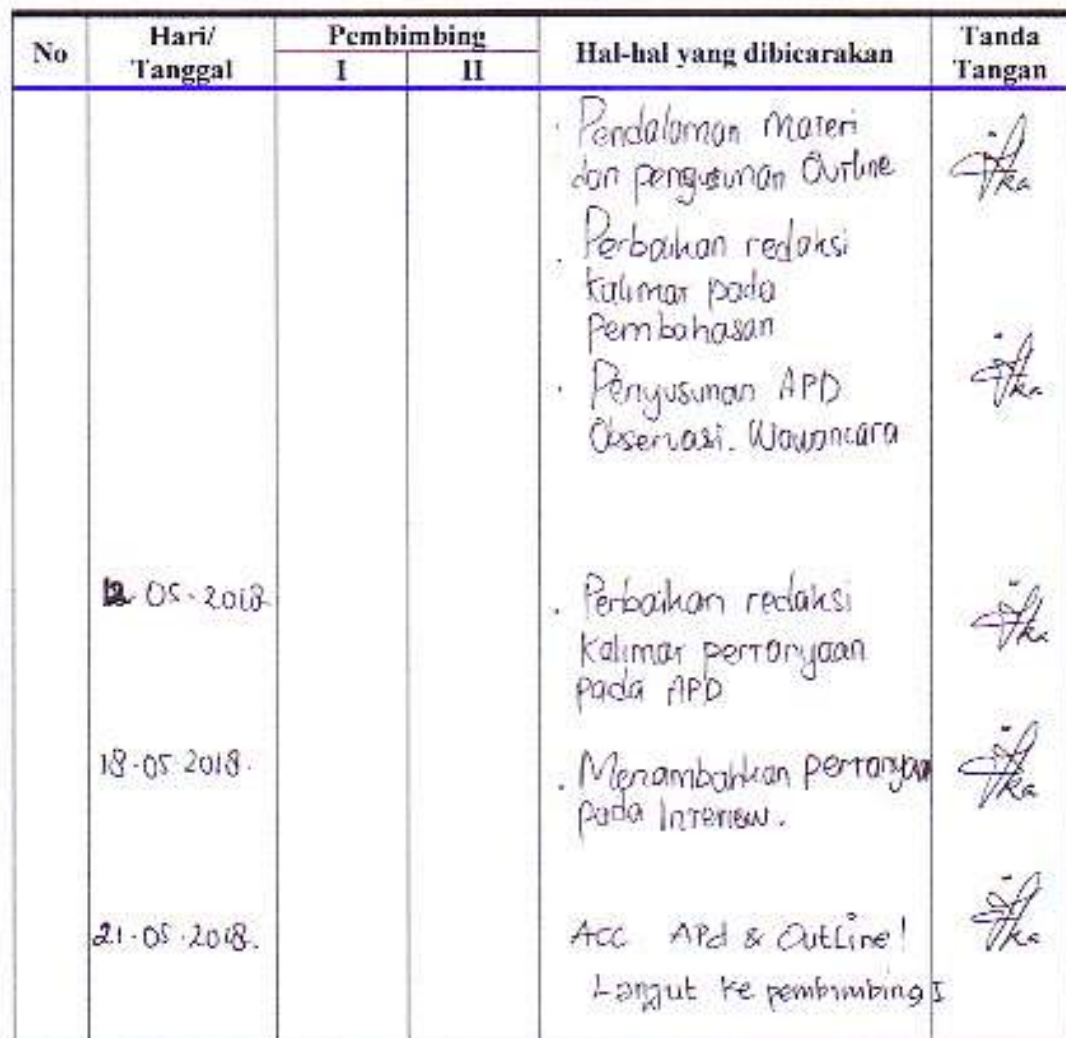 No Hari/ Tanggal Pembimbing I II Hal-hal yang dibicarakan Tanda Tangan
Pendalaman Materi
dan pengusunan Outline
Perbaikan redaksi
Kalimat pada
Pembahasan
Penyusunan APD
Observasi. Wawancara
12 05-2018 Perbaikan redaksi
Kalimat pertanyaan
pada APD
18-05-2018. Menambahkan pertanyaan
pada Interview.
21-05-2018. Acc APd & OutLine!
Lanjut ke pembimbing I